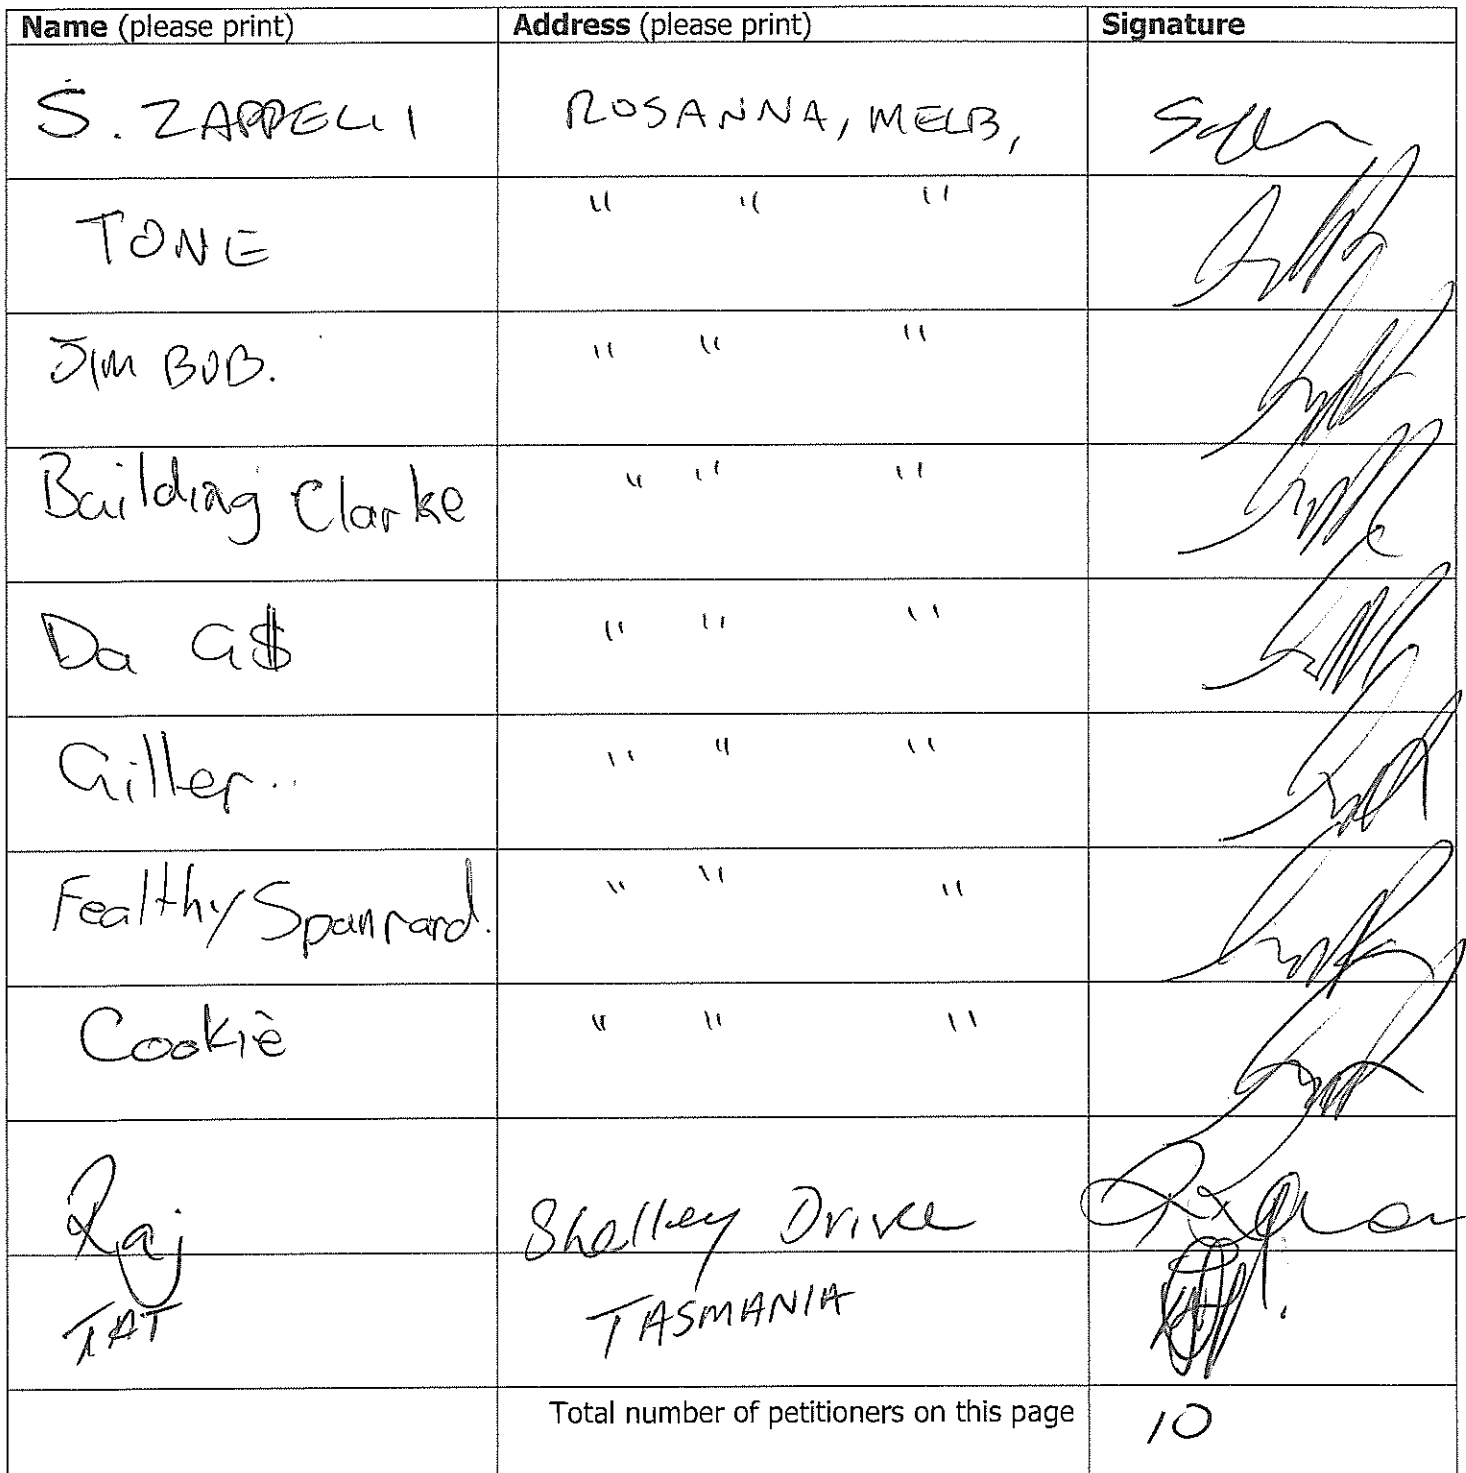 Name (please print) Address (please print) Signature
S. ZAPPELLI ROSANNA, MELB,
TONE " " "
JIM BOB. " " "
Building Clarke " " "
Da G$ " " "
Giller.. " " "
Fealthy Spanrard. " " "
Cookie " " "
Raj Shelley Drive
TAT TASMANIA
Total number of petitioners on this page 10